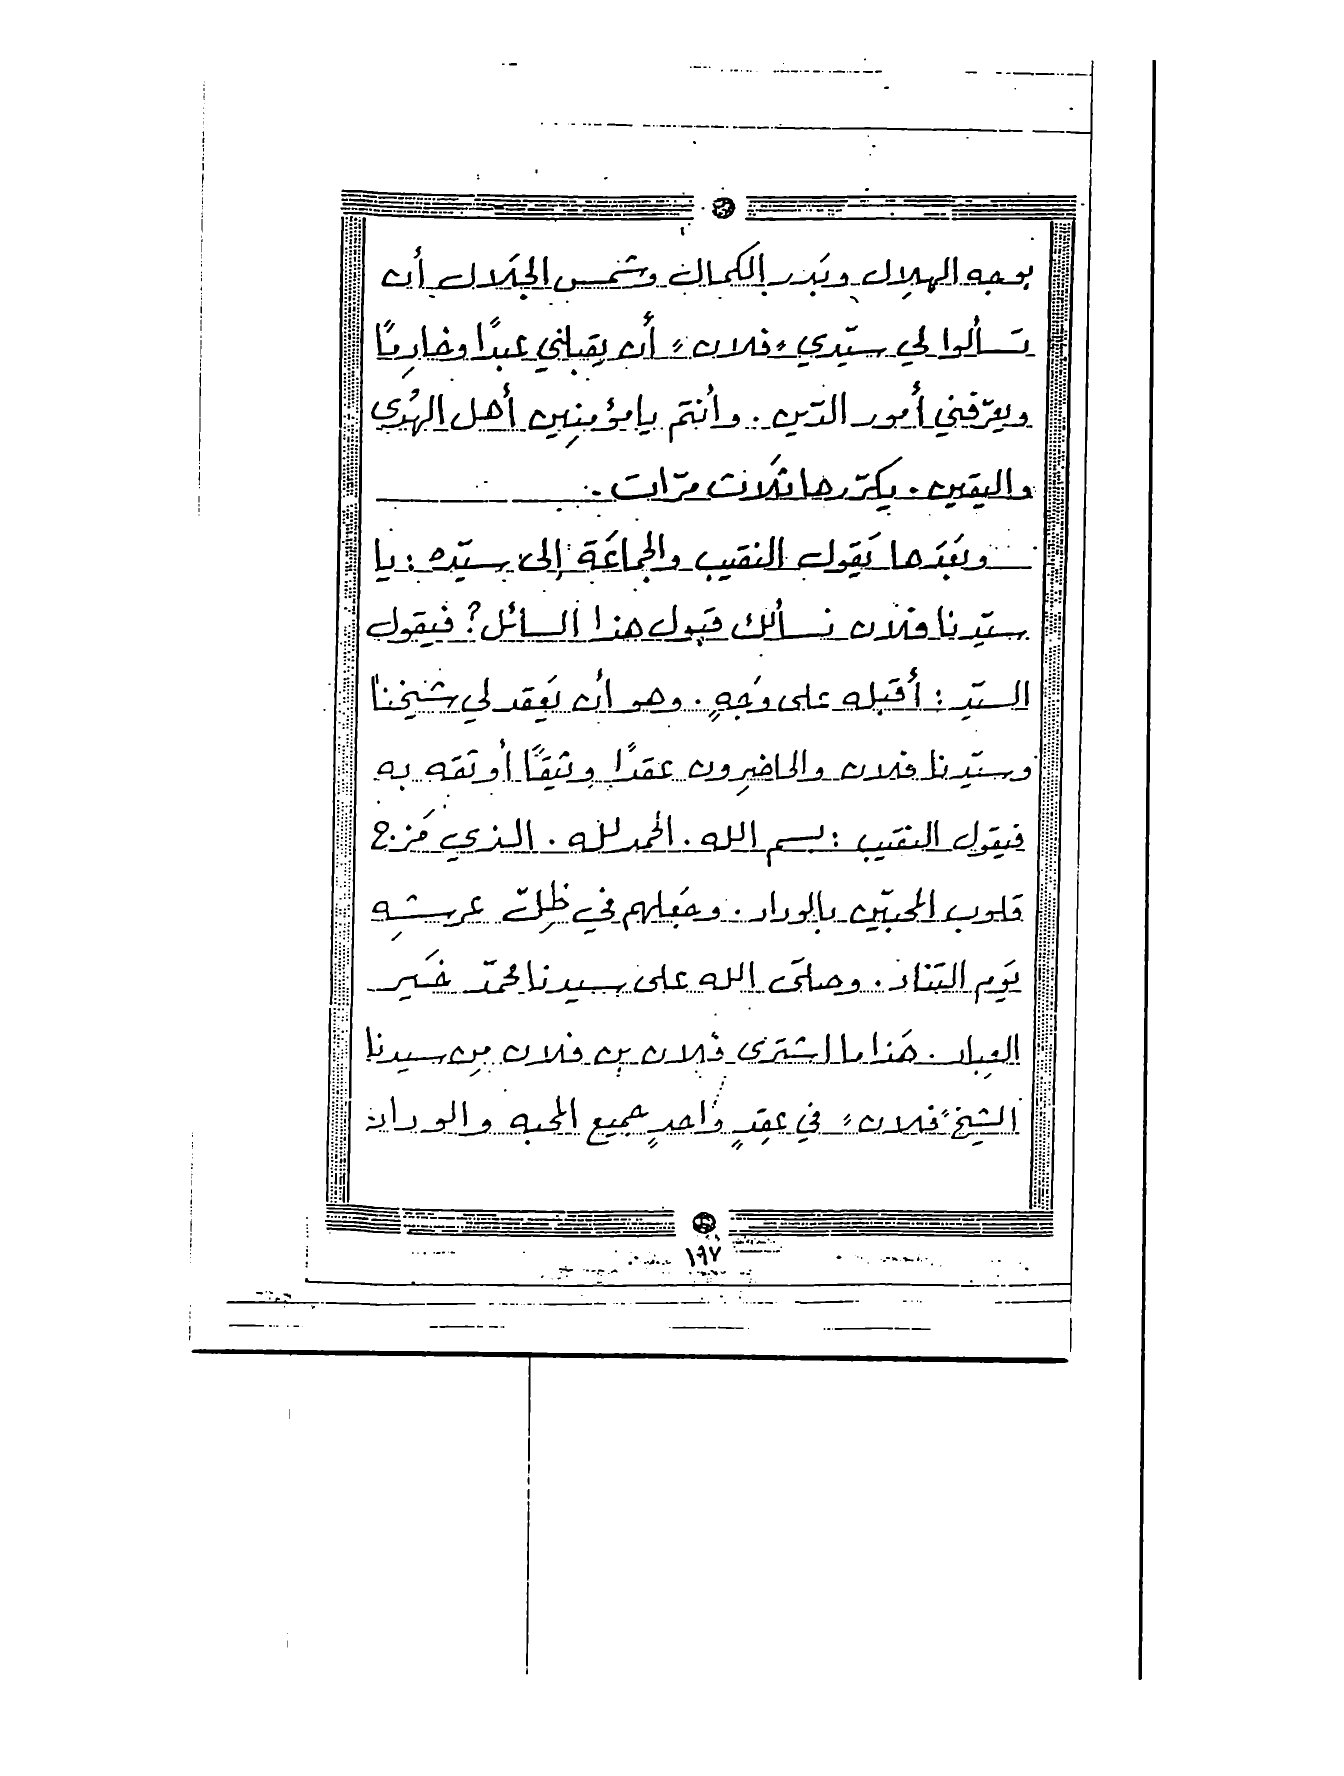 بوجه الهلال وبَدر الكمال وشمس الجَلال أن
تسألوا لي سيّدي «فلان» أن يقبلني عبدًا وخادِمًا
ويعرّفني أمور الدّين. وأنتم يا مؤمنِين أهل الهُدى
واليقين. يكرّرها ثَلاث مرّات.
وبَعَدها يَقول النقيب والجماعَة إلى سيّده: يا
سيّدنا فلان نسألك قبول هذا السائل؟ فيقول
السيّد: أقبله على وَجهٍ. وهو أن يَعقد لي شيخنا
وسيّدنا فلان والحاضِرون عقدًا وثيقًا أوثقه به
فيقول النقيب: بسم الله. الحمد لله. الذي مَزج
قلوب المحبّين بالوداد. وجَعلهم في ظِلّ عرشِه
يَوم التناد. وصلَى الله على سيدنا محمّد خَير
العِباد. هَذا ما اشترى فلان بن فلان مِن سيدنا
الشيخ «فلان» في عقِدٍ واحدٍ جميع المحبه والوداد
١٩٧